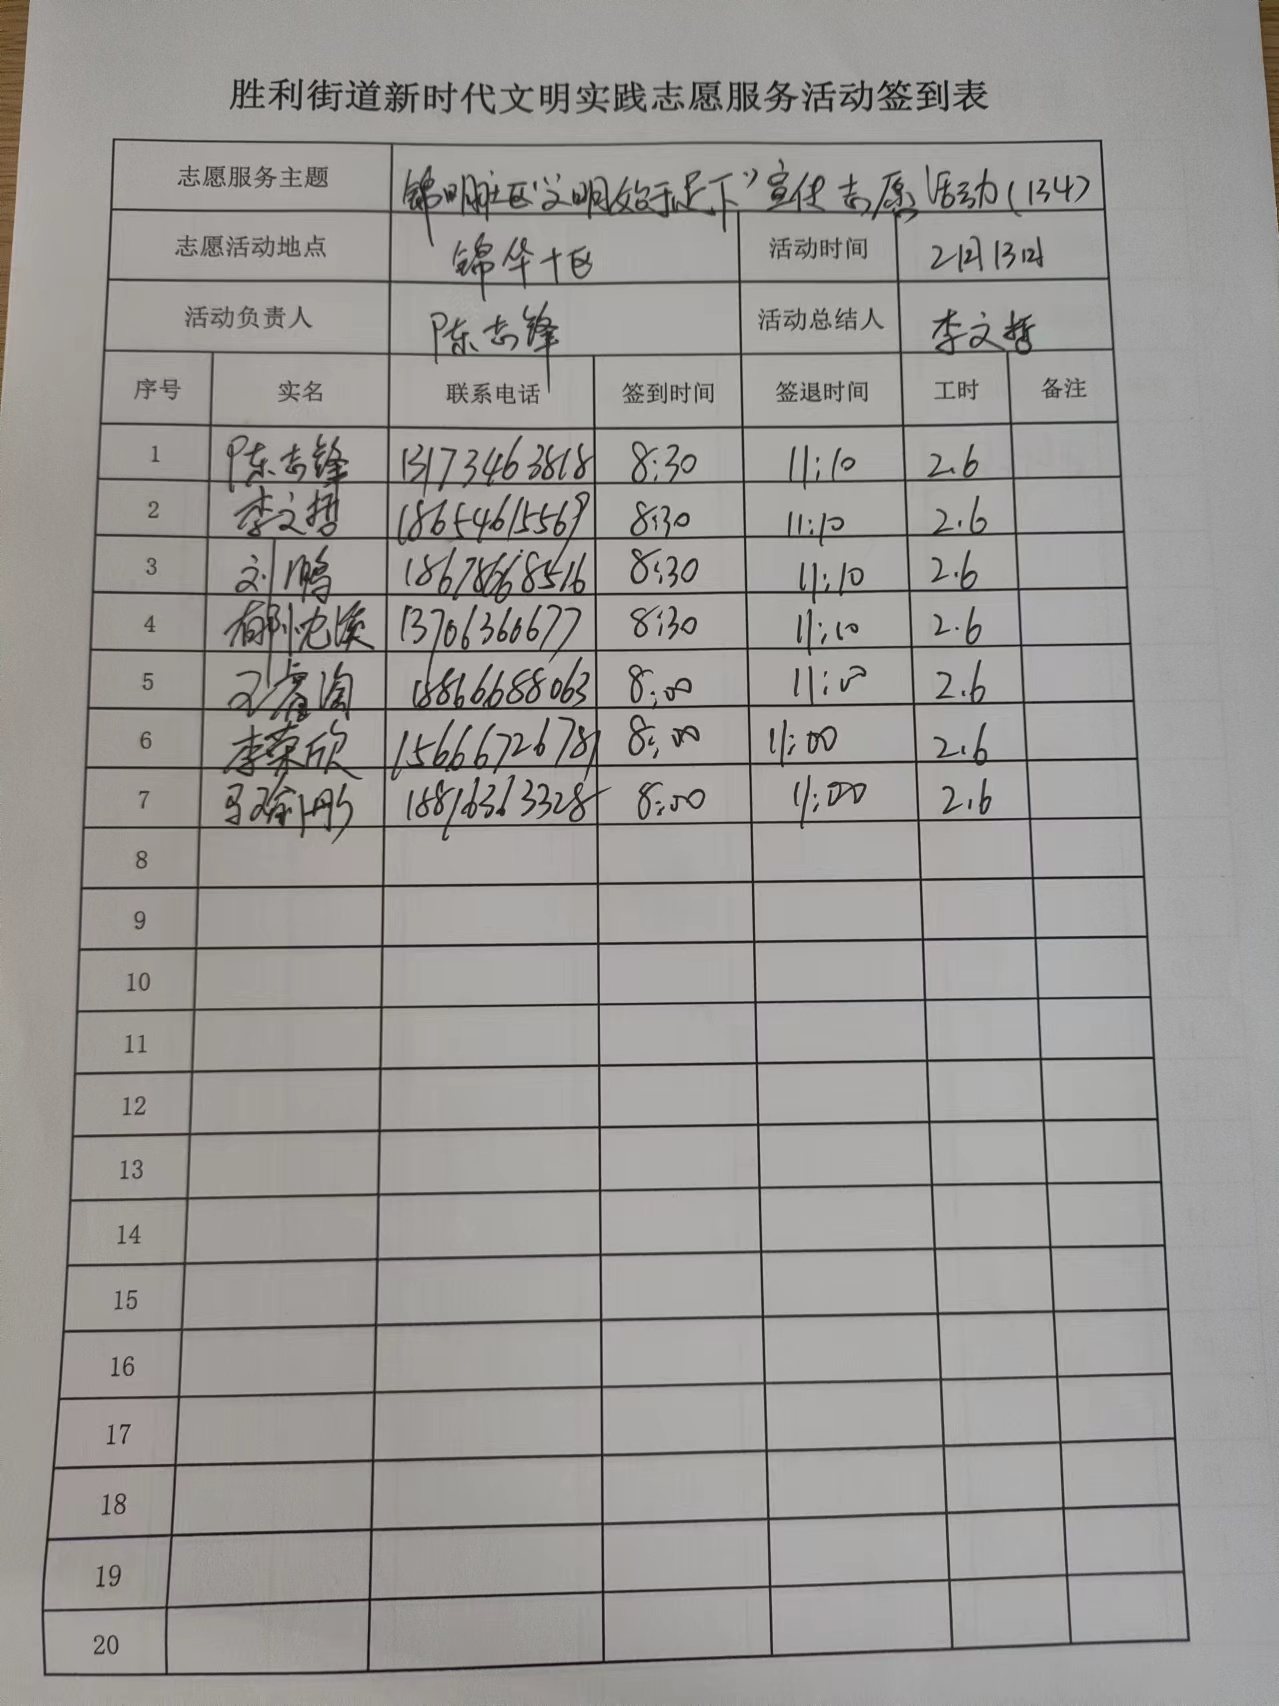 胜利街道新时代文明实践志愿服务活动签到表
志愿服务主题 锦明社区“文明始于足下”宣传志愿活动(134)
志愿活动地点 锦华十区 活动时间 2月13日
活动负责人 陈志锋 活动总结人 李文哲
序号 实名 联系电话 签到时间 签退时间 工时 备注
1 陈志锋 13173463818 8:30 11:10 2.6
2 李文哲 18654615569 8:30 11:10 2.6
3 刘鹏 18678668516 8:30 11:10 2.6
4 13706360677 8:30 11:10 2.6
5 18866688063 8:00 11:00 2.6
6 李荣欣 15666726781 8:00 11:00 2.6
7 18816363328 8:00 11:00 2.6
8
9
10
11
12
13
14
15
16
17
18
19
20